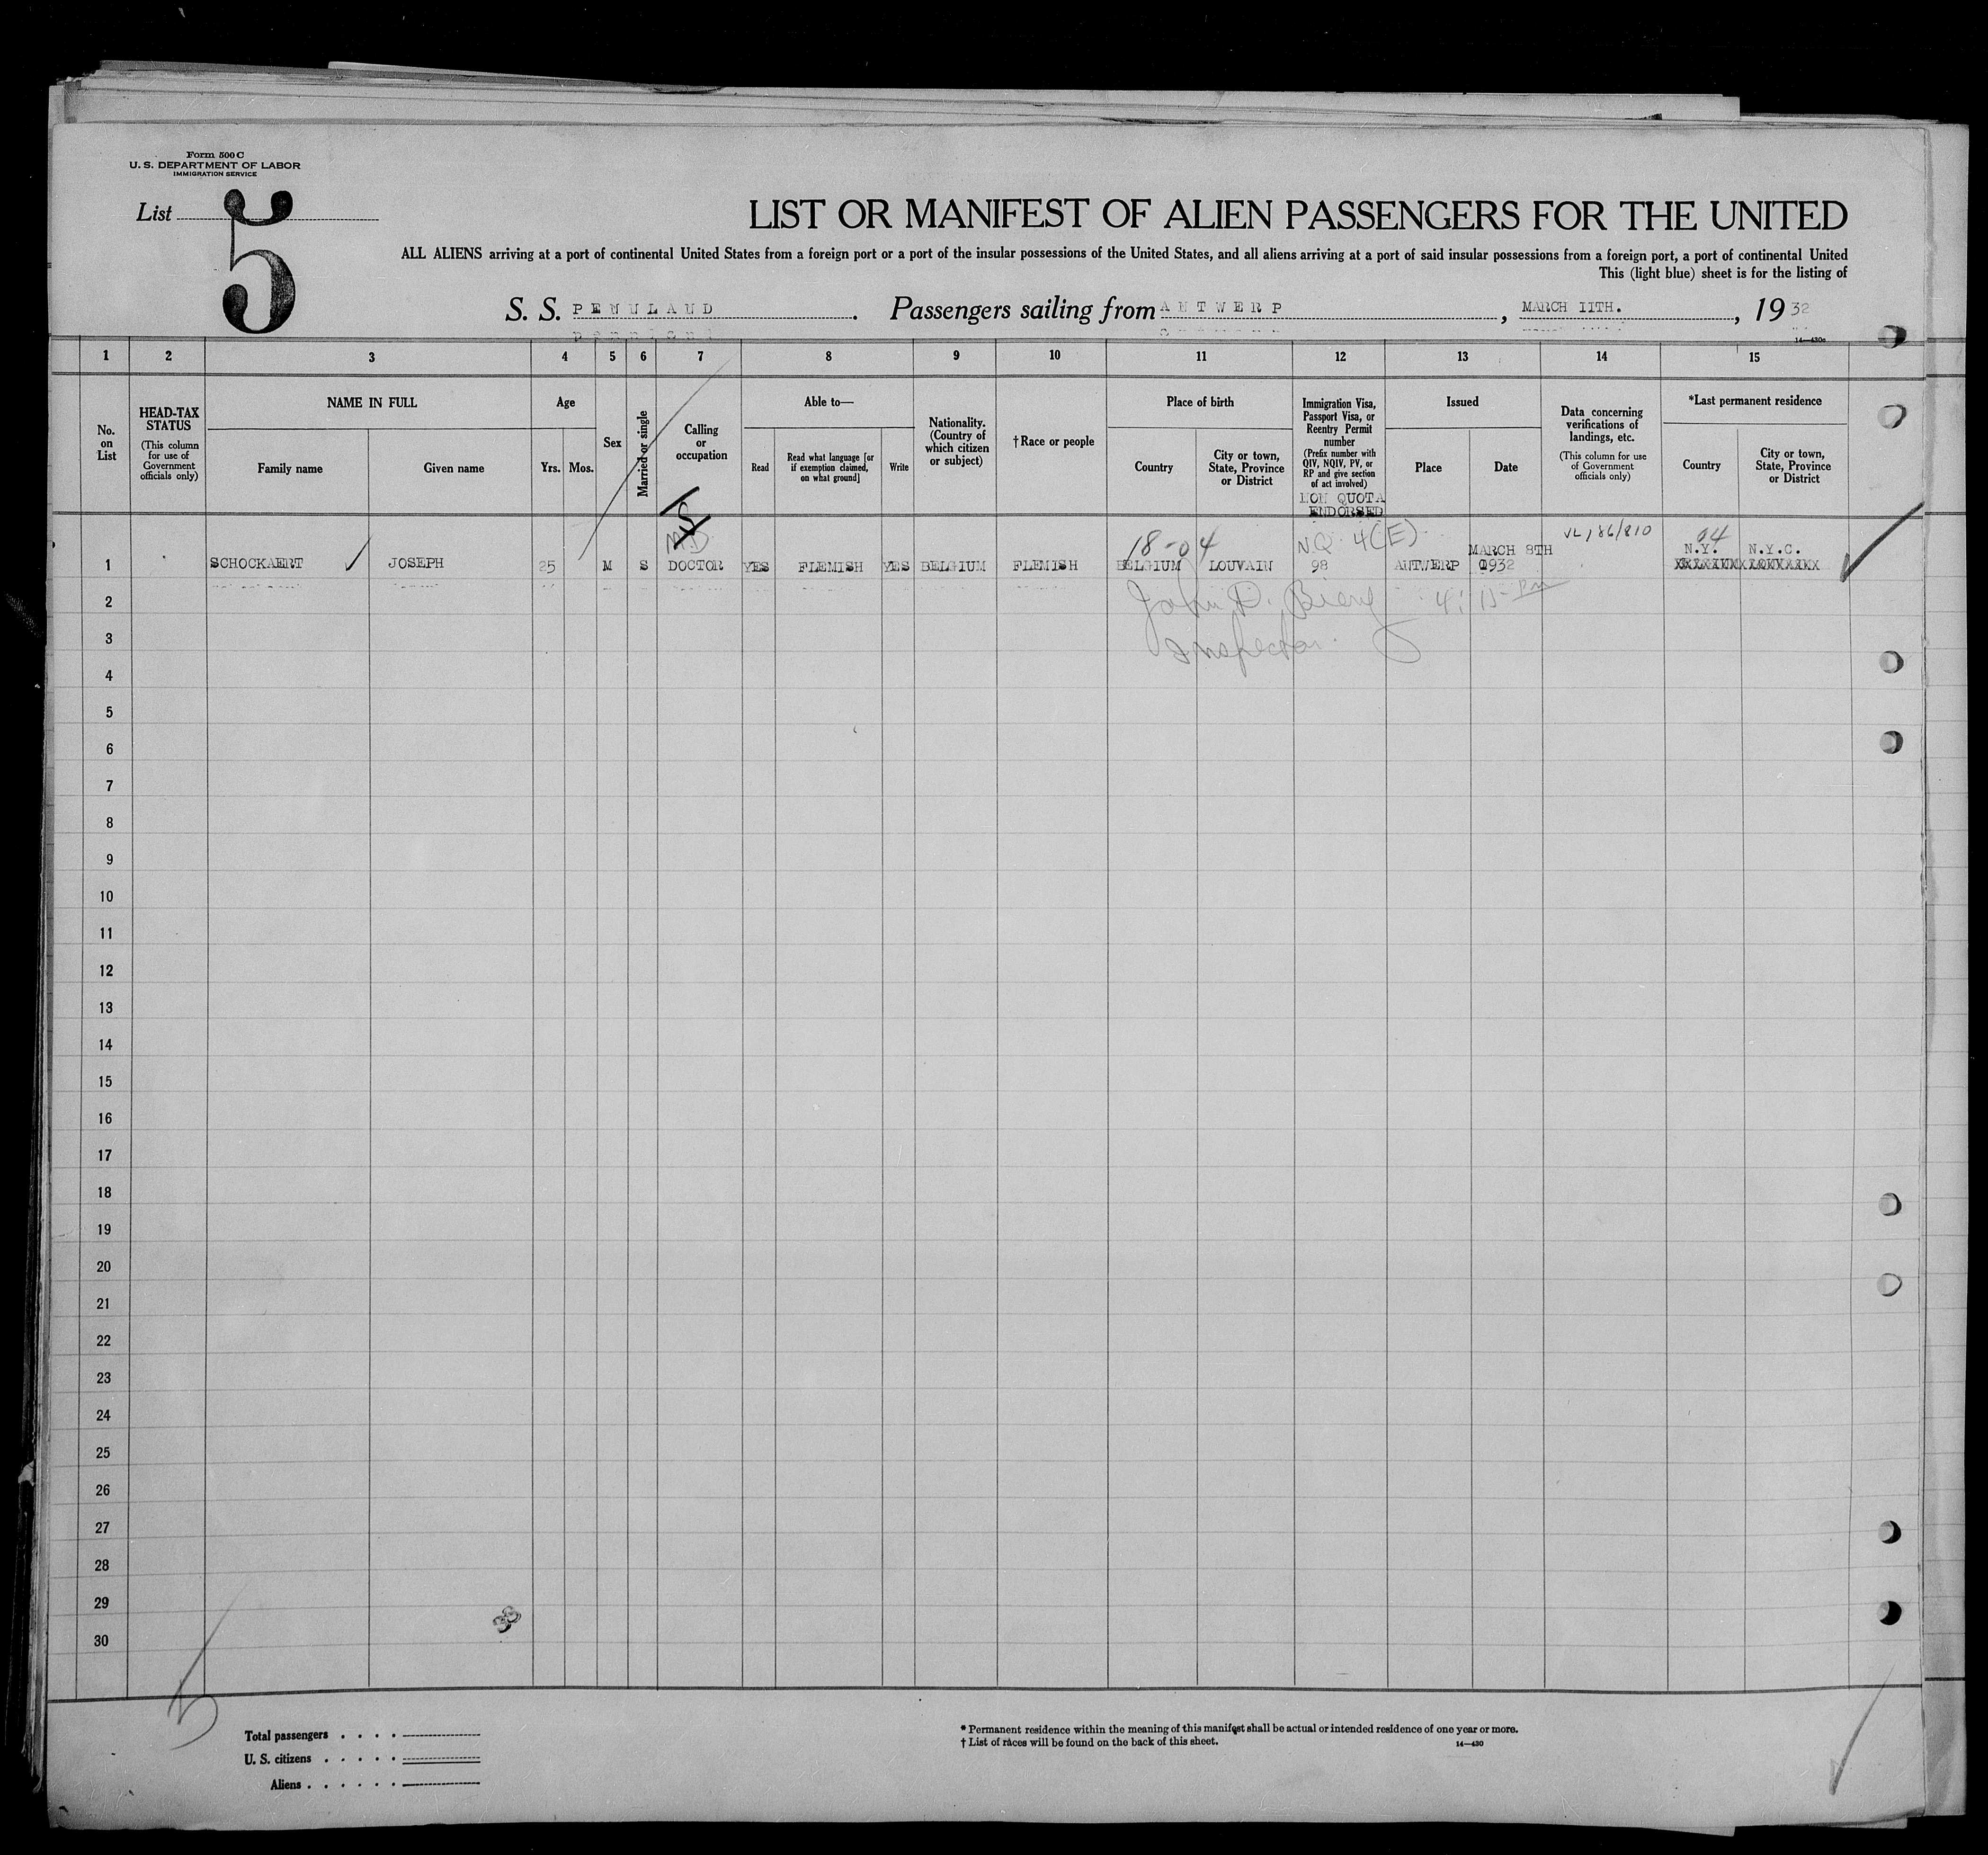 Form 500 C
U. S. DEPARTMENT OF LABOR
IMMIGRATION SERVICE
List 5
LIST OR MANIFEST OF ALIEN PASSENGERS FOR THE UNITED
ALL ALIENS arriving at a port of continental United States from a foreign port or a port of the insular possessions of the United States, and all aliens arriving at a port of said insular possessions from a foreign port, a port of continental United
This (light blue) sheet is for the listing of
S. S. PENNLAND. Passengers sailing from ANTWERP, MARCH 11TH., 1932
14—430c
1 2 3 4 5 6 7 8 9 10 11 12 13 14 15
No. on List
HEAD-TAX STATUS
(This column for use of Government officials only)
NAME IN FULL
Family name
Given name
Age
Yrs. Mos.
Sex
Married or single
Calling or occupation
Able to—
Read
Read what language [or if exemption claimed, on what ground]
Write
Nationality. (Country of which citizen or subject)
†Race or people
Place of birth
Country
City or town, State, Province or District
Immigration Visa, Passport Visa, or Reentry Permit number
(Prefix number with QIV, NQIV, PV, or RP and give section of act involved)
NON QUOTA
ENDORSED
Issued
Place
Date
Data concerning verifications of landings, etc.
(This column for use of Government officials only)
*Last permanent residence
Country
City or town, State, Province or District
M.D. 18-04 N.Q. 4(E) VL 186/810 04
MARCH 8TH N.Y. N.Y.C.
1 SCHOCKAERT JOSEPH 25 M S DOCTOR YES FLEMISH YES BELGIUM FLEMISH BELGIUM LOUVAIN 98 ANTWERP 1932
2 John D. 4:15 PM
3 Inspector.
4
5
6
7
8
9
10
11
12
13
14
15
16
17
18
19
20
21
22
23
24
25
26
27
28
29
30
5
Total passengers . . . .
U. S. citizens . . . . .
Aliens . . . . . .
* Permanent residence within the meaning of this manifest shall be actual or intended residence of one year or more.
† List of races will be found on the back of this sheet.
14—430